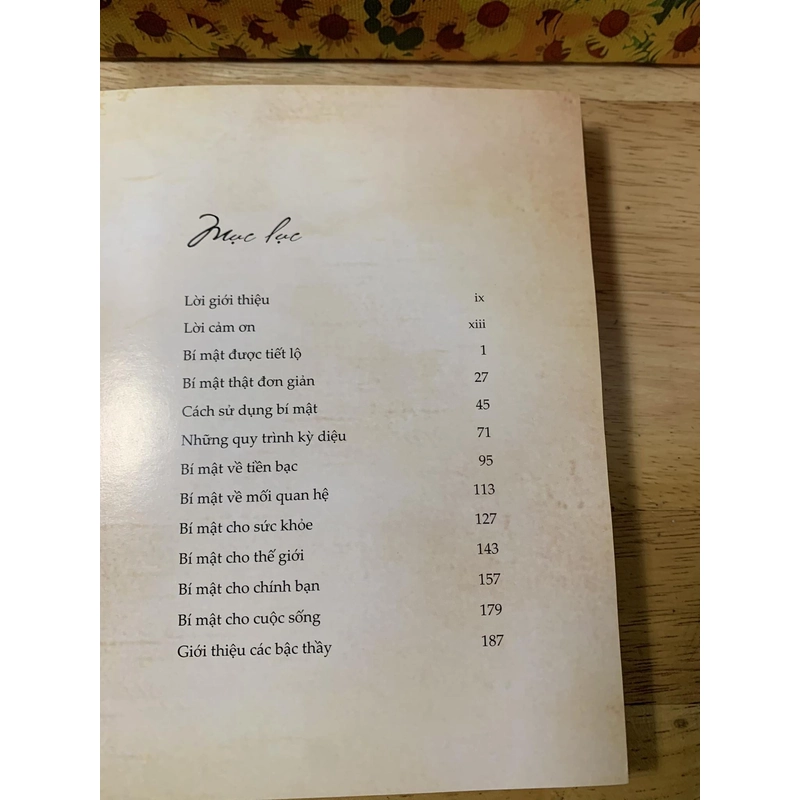 Mục lục
Lời giới thiệu ix
Lời cảm ơn xiii
Bí mật được tiết lộ 1
Bí mật thật đơn giản 27
Cách sử dụng bí mật 45
Những quy trình kỳ diệu 71
Bí mật về tiền bạc 95
Bí mật về mối quan hệ 113
Bí mật cho sức khỏe 127
Bí mật cho thế giới 143
Bí mật cho chính bạn 157
Bí mật cho cuộc sống 179
Giới thiệu các bậc thầy 187